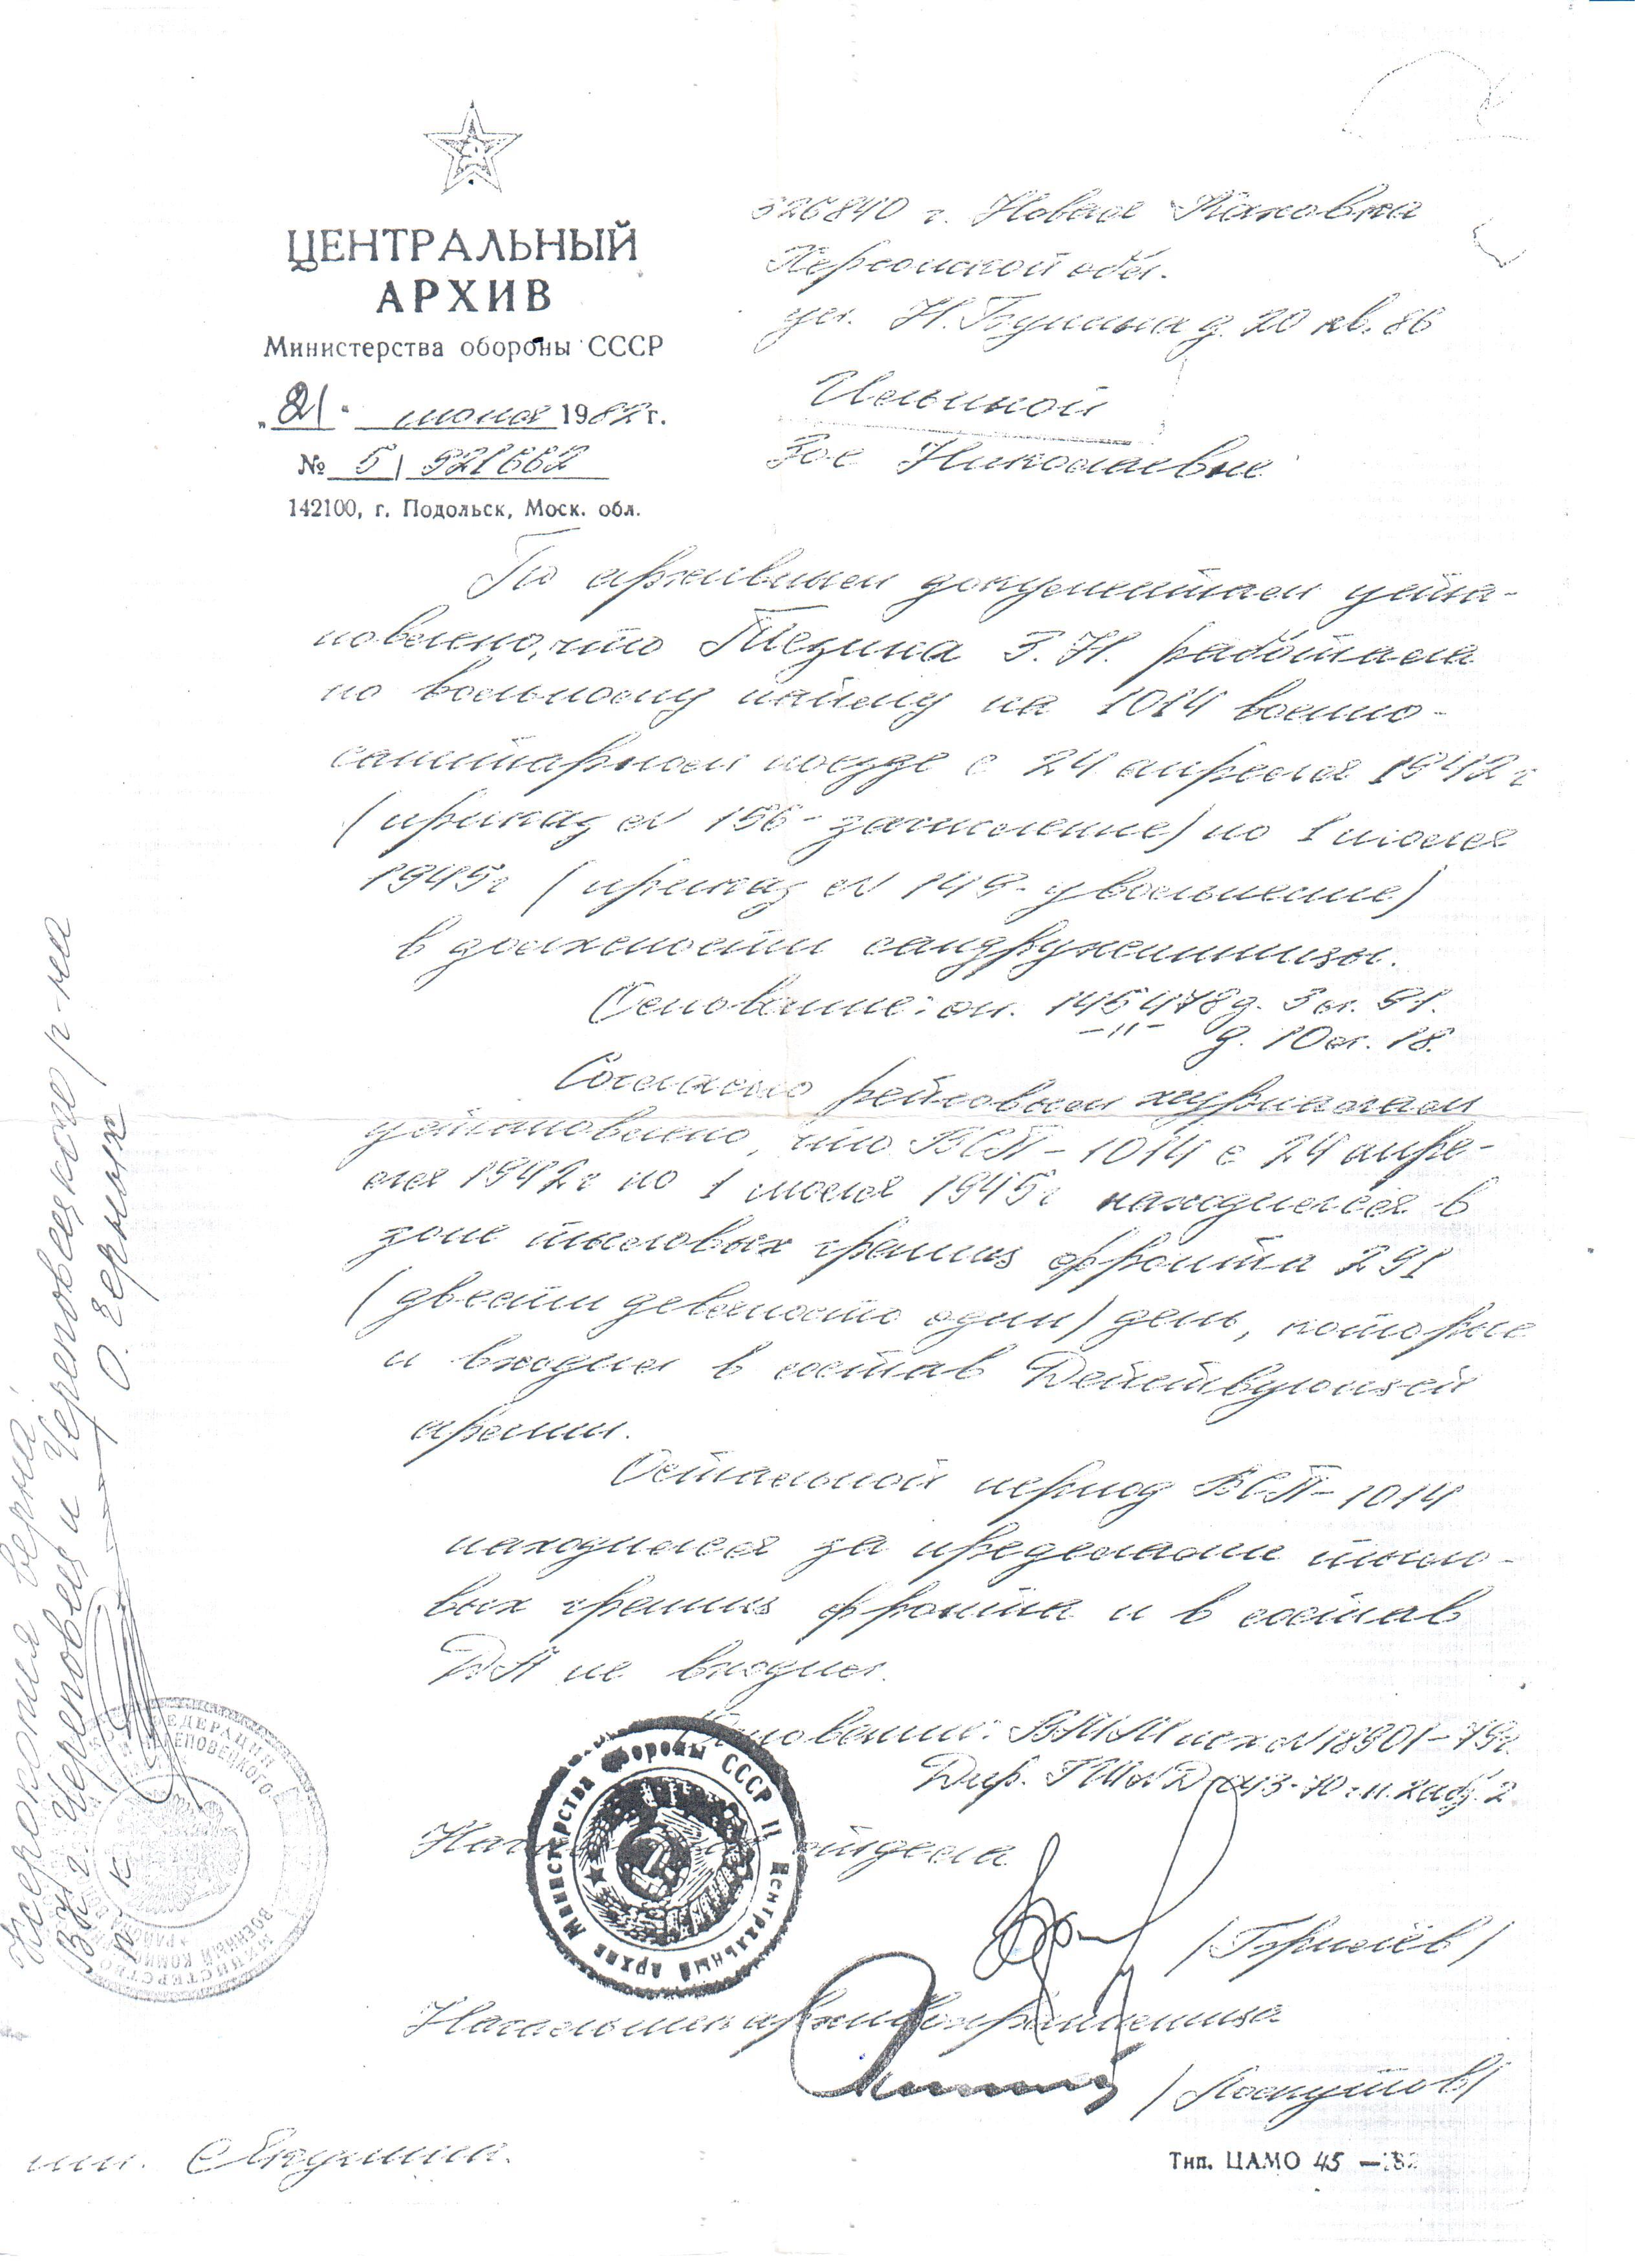 ЦЕНТРАЛЬНЫЙ
АРХИВ
Министерства обороны СССР
„21“ июня 1982 г.
№ 5 | 921662
142100, г. Подольск, Моск. обл.
326840 г. Новая Каховка
Херсонской обл.
ул. д. 20 кв. 86
Ильиной
Зое Николаевне
По архивным документам уста-
новлено, что Тезина З. Н. работала
по вольному найму на 1014 военно-
санитарном поезде с 24 апреля 1942 г
(приказ № 156 - зачисление) по 1 июля
1945 г (приказ № 149 - увольнение)
в должности сандружинницы.
Основание: оп. 145478 д. 3 л. 91.
—"— д. 10 л. 18.
Согласно рейсовым журналам
установлено, что ВСП-1014 с 24 апре-
ля 1942 г по 1 июля 1945 г находился в
зоне тыловых границ фронта 291
(двести девяносто один) день, которые
и входил в состав Действующей
армии.
Остальной период ВСП-1014
находился за пределами тыло-
вых границ фронта и в состав
ДА не входил.
Основание: ВММ исх № 18901-79 г.
Дир. ГШ
отдела
/Горилёв/
Начальник архивохранилища
/Лоскутов/
исп. Якунина.
Тип. ЦАМО 45 —82
Министерства Обороны СССР Центральный архив
Ксерокопия верна:
ВК г. Череповец и Череповецкого р-на
О. Черных